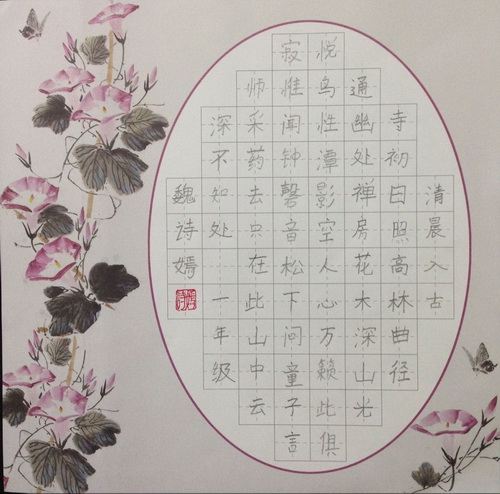 清晨入古
寺初日照高林曲径
通幽处禅房花木深山光
悦鸟性潭影空人心万籁此俱
寂惟闻钟磬音松下问童子言
师采药去只在此山中云
深不知处 一年级
魏诗嫣